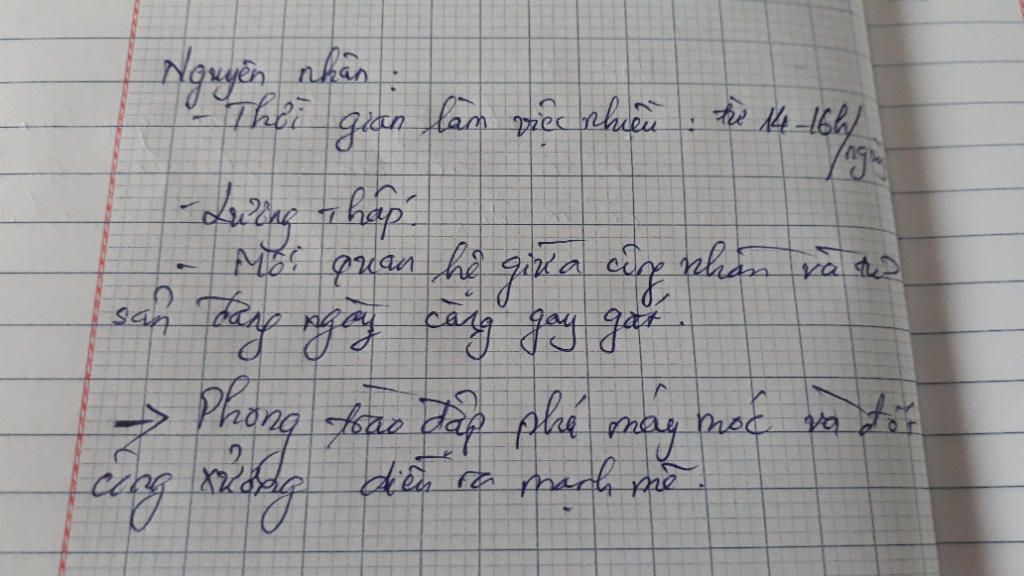 Nguyên nhân :
- Thời gian làm việc nhiều : từ 14-16h/
ngày
- Lương thấp.
- Mối quan hệ giữa công nhân và tư
sản đang ngày càng gay gắt.
→ Phong trào đập phá máy móc và đốt
công xưởng diễn ra mạnh mẽ.